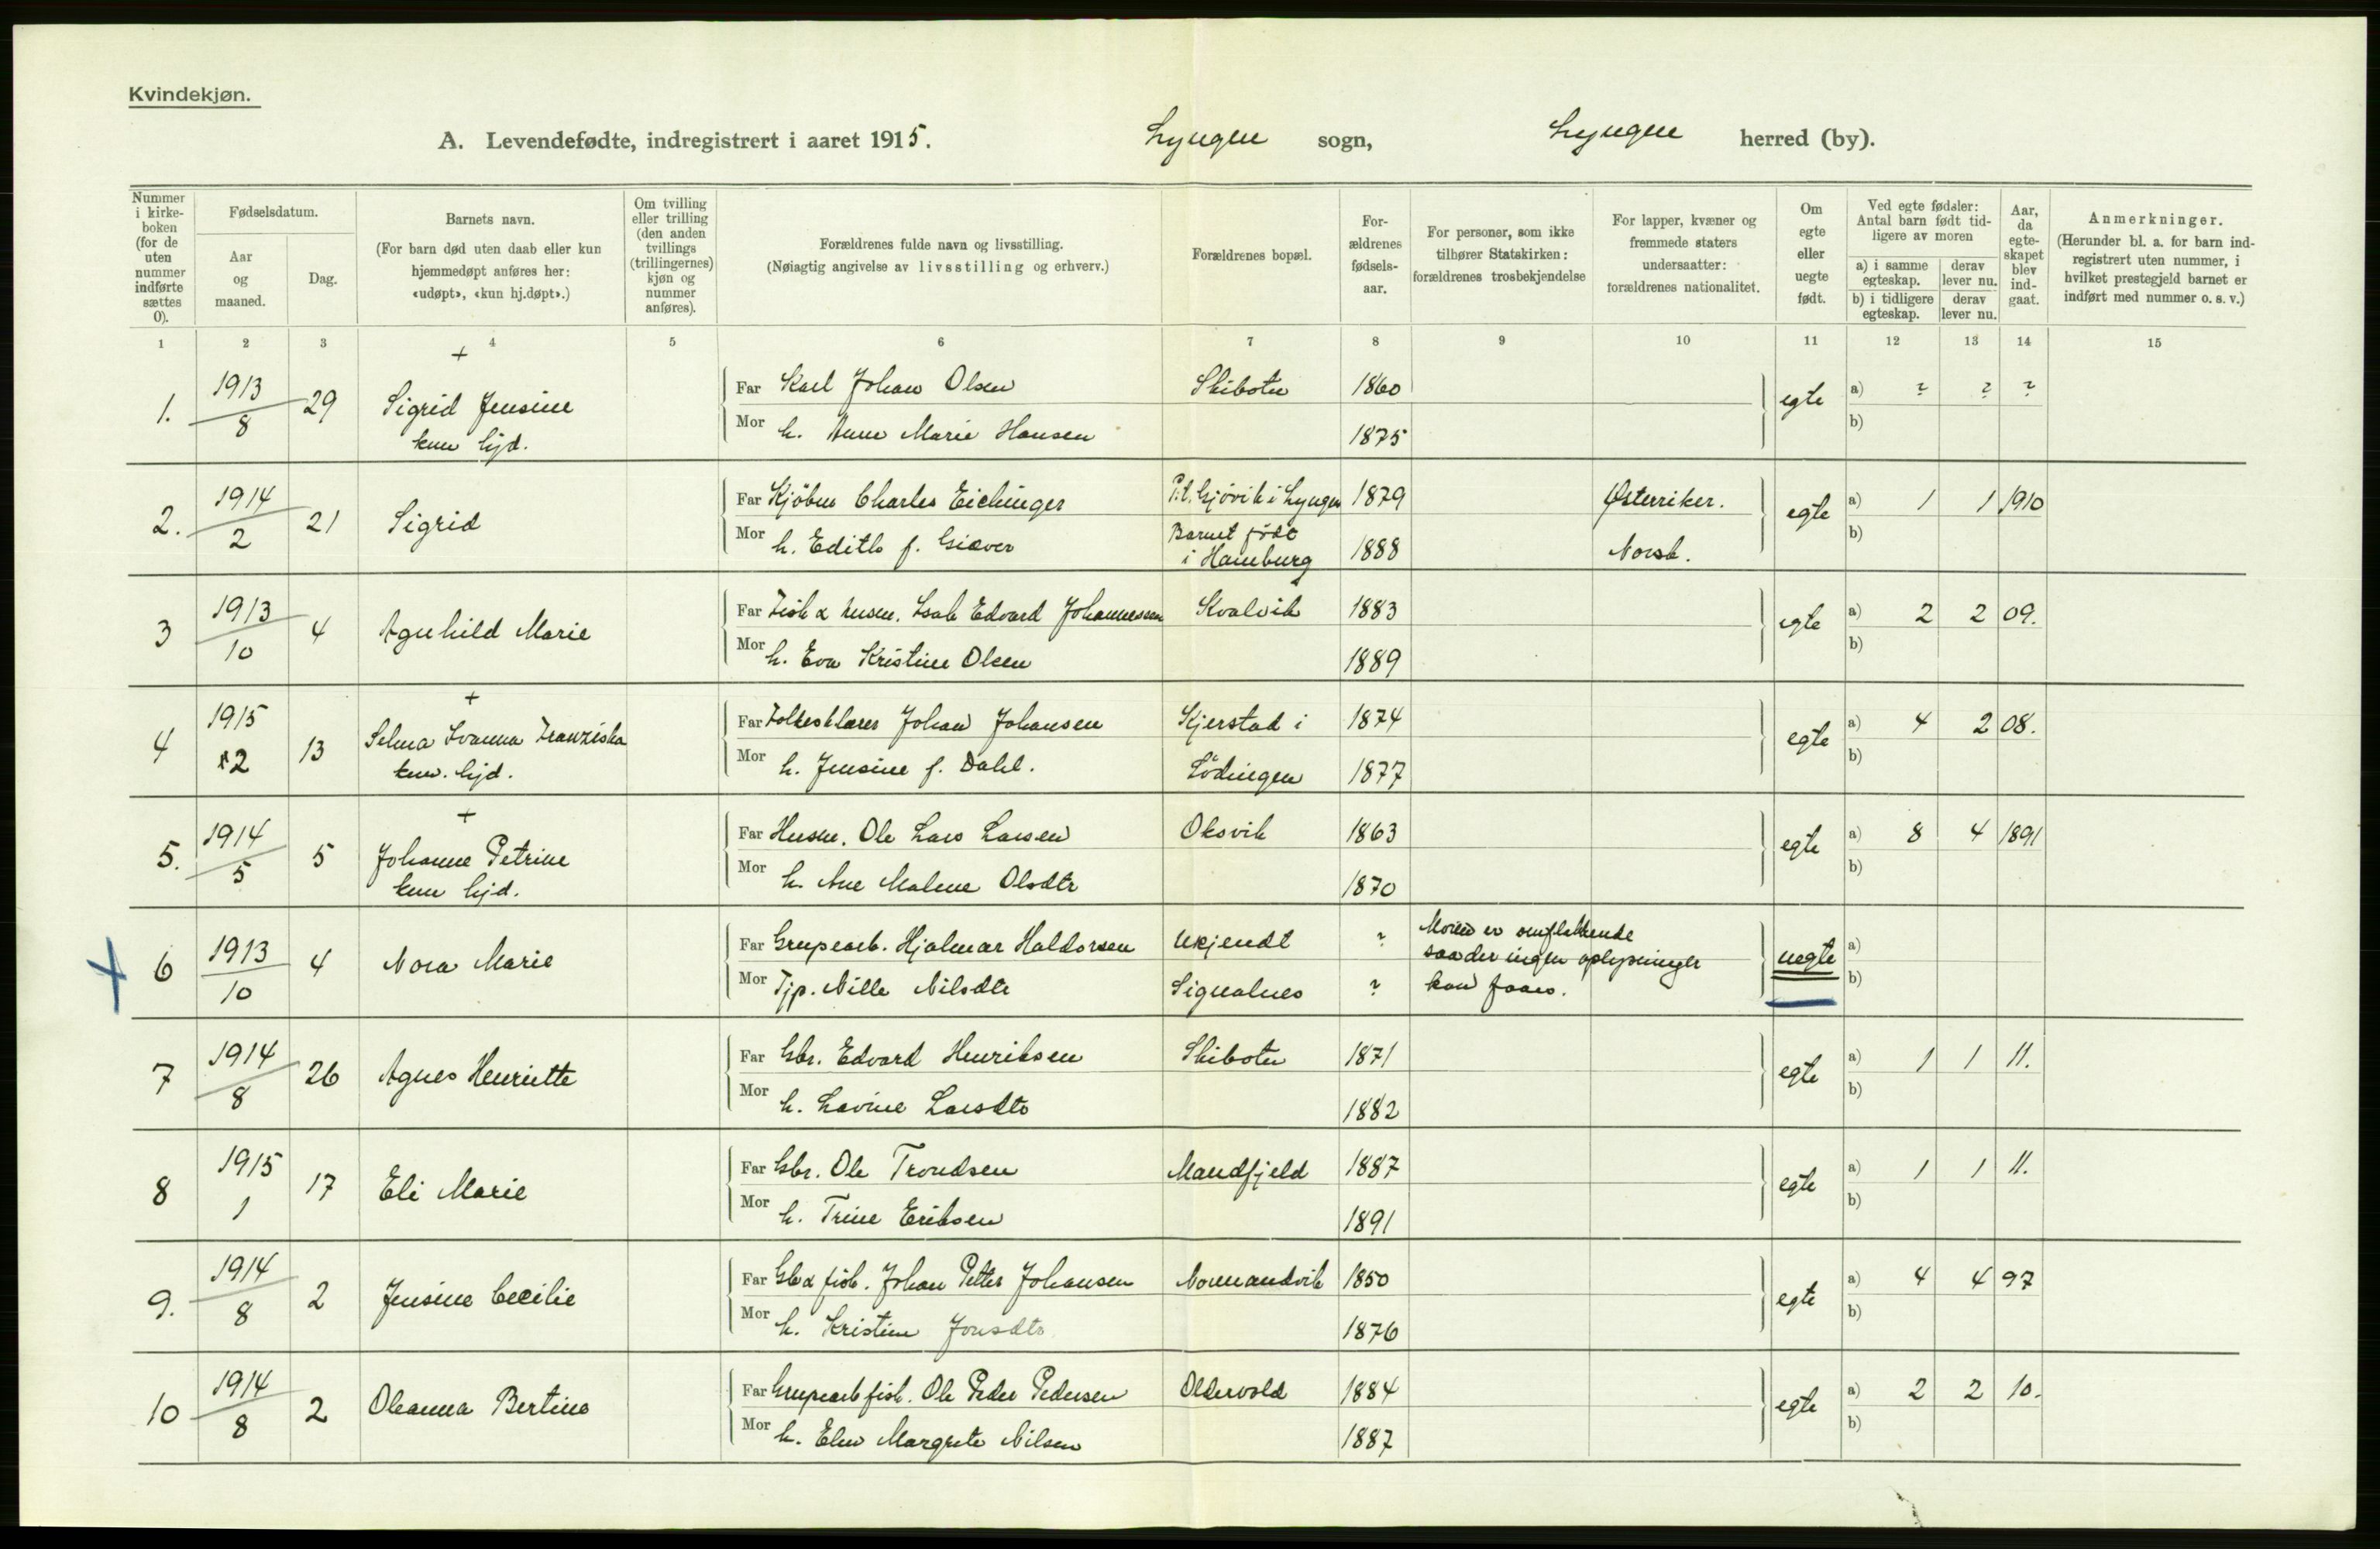 Kvindekjøn.
A. Levendefødte, indregistrert i aaret 1915. Lyngen sogn, Lyngen herred (by).
Nummer i kirke-boken (for de uten nummer indførte sættes 0).
Fødselsdatum.
Aar og maaned.
Dag.
Barnets navn.
(For barn død uten daab eller kun hjemmedøpt anføres her: «udøpt», «kun hj.døpt».)
Om tvilling eller trilling (den anden tvillings (trillingernes) kjøn og nummer anføres).
Forældrenes fulde navn og livsstilling.
(Nøiagtig angivelse av livsstilling og erhverv.)
Forældrenes bopæl.
For-ældrenes fødsels-aar.
For personer, som ikke tilhører Statskirken: forældrenes trosbekjendelse
For lapper, kvæner og fremmede staters undersaatter: forældrenes nationalitet.
Om egte eller uegte født.
Ved egte fødsler: Antal barn født tid-ligere av moren
a) i samme egteskap. derav lever nu.
b) i tidligere egteskap. derav lever nu.
Aar, da egte-skapet blev ind-gaat.
Anmerkninger.
(Herunder bl. a. for barn ind-registrert uten nummer, i hvilket prestegjeld barnet er indført med nummer o. s. v.)
1 2 3 4 5 6 7 8 9 10 11 12 13 14 15
+
1. 1913 8 29 Sigrid Jensine Far Karl Johan Olsen Skibotn 1860 egte a) ? ? ?
kun hjd. Mor h. Anne Marie Hansen 1875 b)
2. 1914 2 21 Sigrid Far Kjöbm Charles Eichinger P.t. Gjövik i Lyngen 1879 Østerriker. egte a) 1 1 1910
Mor h. Edith f. Giæver Barnet födt i Hamburg 1888 Norsk. b)
3 1913 10 4 Agnhild Marie Far Fisk & husm. Isak Edvard Johannessen Kvalvik 1883 egte a) 2 2 09.
Mor h. Eva Kristine Olsen 1889 b)
+
4 1915 2 13 Selma Ivanna Franziska Far Folkeskl.ærer Johan Johansen Kjerstad i 1874 egte a) 4 2 08.
kun. hjd. Mor h. Jensine f. Dahl. Lödingen 1877 b)
+
5. 1914 5 5 Johanne Petrine Far Husm. Ole Lars Larsen Oksvik 1863 egte a) 8 4 1891
kun hjd. Mor h. Ane Malene Olsdtr 1870 b)
+ 6 1913 10 4 Nora Marie Far Grupearb. Hjalmar Haldorsen Ukjendt ? Moren er omflakkende saa der ingen oplysninger kan faaes. uegte a)
Mor Tjp. Nille Nilsdtr Signalnes ? b)
7 1914 8 26 Agnes Henriette Far Gbr. Edvard Henriksen Skibotn 1871 egte a) 1 1 11.
Mor h. Lavine Larsdtr 1882 b)
8 1915 1 17 Eli Marie Far Gbr. Ole Trondsen Mandfjeld 1887 egte a) 1 1 11.
Mor h. Trine Eriksen 1891 b)
9. 1914 8 2 Jensine Cecilie Far Gb & fisk. Johan Petter Johansen Normandvik 1850 egte a) 4 4 97
Mor h. Kristine Jonsdtr 1876 b)
10 1914 8 2 Oleanna Bertine Far Grupearb fisk. Ole Peder Pedersen Oldervold 1884 egte a) 2 2 10.
Mor h. Elen Margrete Nilsen 1887 b)